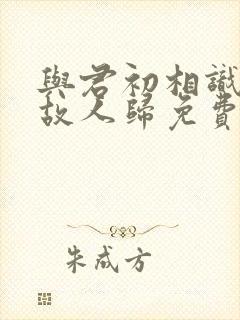 與君初相識
故人歸免費
朱成方